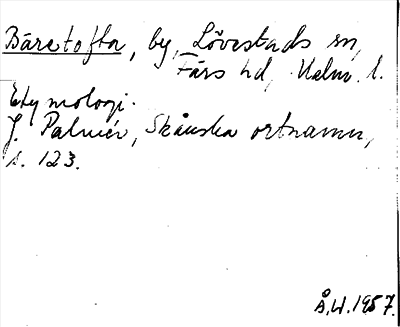 Båretofta, by, Lövestads sn,
Färs hd, Malm. l.
Etymologi.
J. Palmér, Skånska ortnamn,
s. 123.
Å.H. 1957.